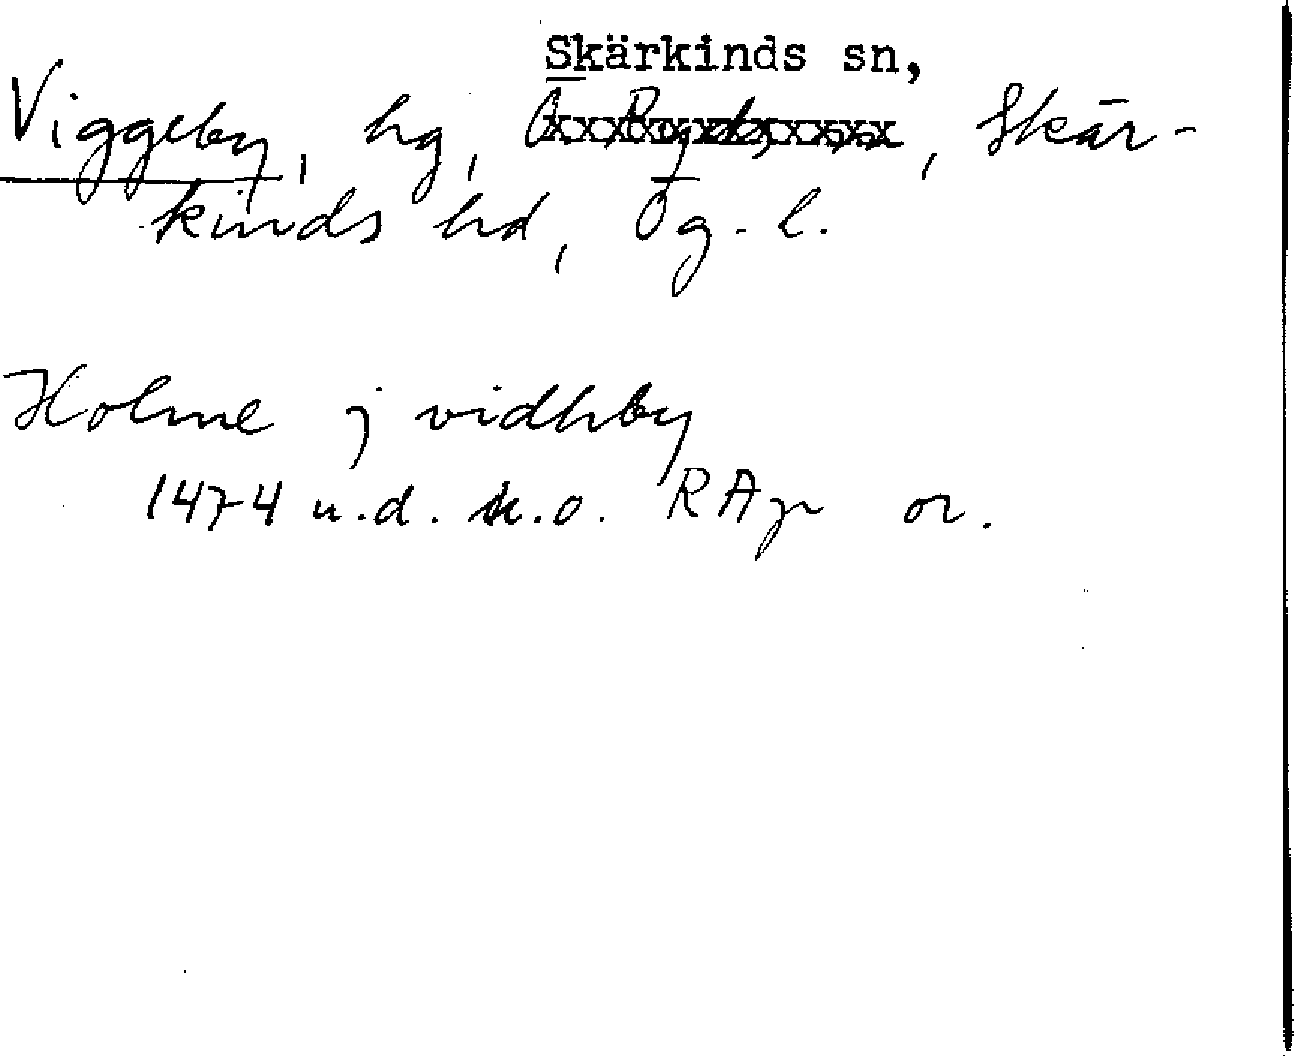 Skärkinds sn,
Viggeby, hg, , Skär-
kinds hd, Ög. l.
Holme j vidhby
1474 u.d. u.o. RAp or.